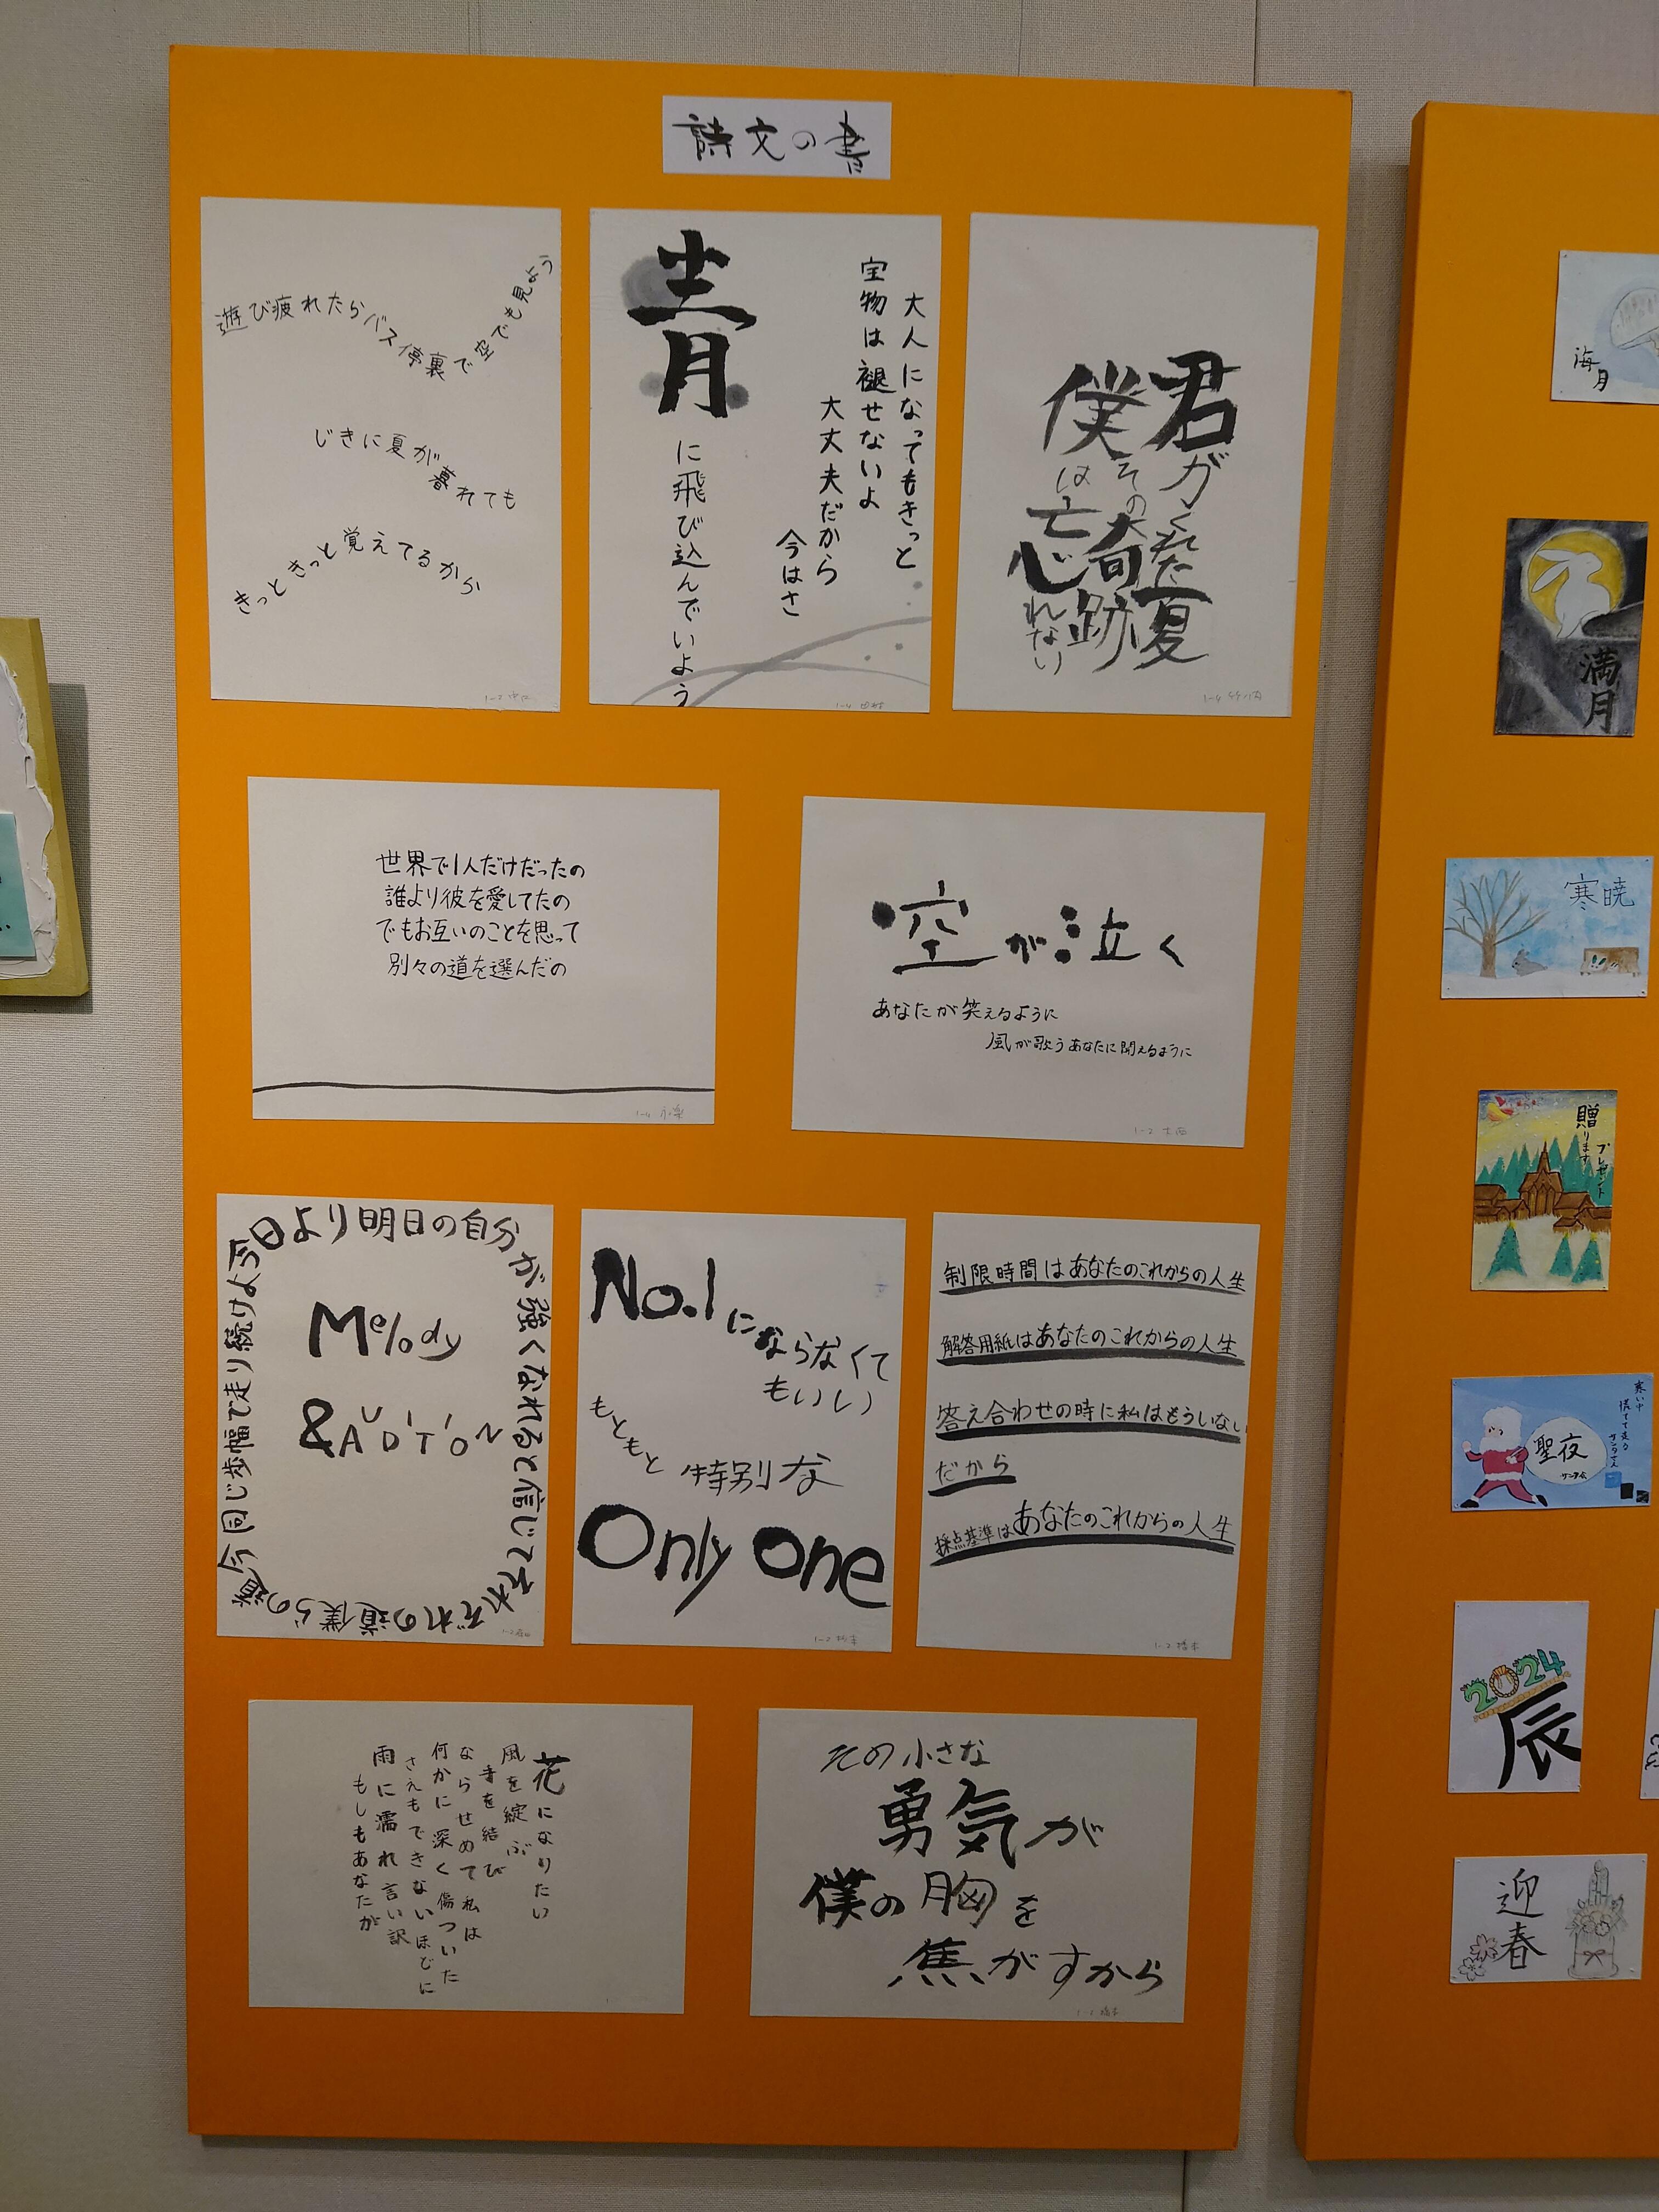 詩文の書
遊び疲れたらバス停裏で空でも見よう
じきに夏が暮れても
きっときっと覚えてるから
大人になってもきっと
宝物は褪せないよ
大丈夫だから
今はさ
青
に飛び込んでいよう
1-4 田村
君がくれた夏
その奇跡
僕は忘れない
1-4 竹川内
世界で1人だけだったの
誰より彼を愛してたの
でもお互いのことを思って
別々の道を選んだの
1-4 永楽
空が泣く
あなたが笑えるように
風が歌うあなたに聞えるように
1-2
今日より明日の自分が強くなれると信じてそれぞれの道僕らの道今同じ歩幅で走り続けよ
Melody
&AUDITION
1-2
No.1
にならなくて
もいい
もともと特別な
Only one
1-2
制限時間はあなたのこれからの人生
解答用紙はあなたのこれからの人生
答え合わせの時に私はもういない
だから
採点基準はあなたのこれからの人生
1-2 橋本
花になりたい
風を綻ぶ
手を結び
ならせめて私は
何かに深く傷ついた
さえもできないほどに
雨に濡れ言い訳
もしもあなたが
その小さな
勇気が
僕の胸を
焦がすから
橋本
海月
満月
寒暁
贈ります
プレゼント
寒い中
慌てて走る
サンタさん
聖夜
2024
辰
迎春